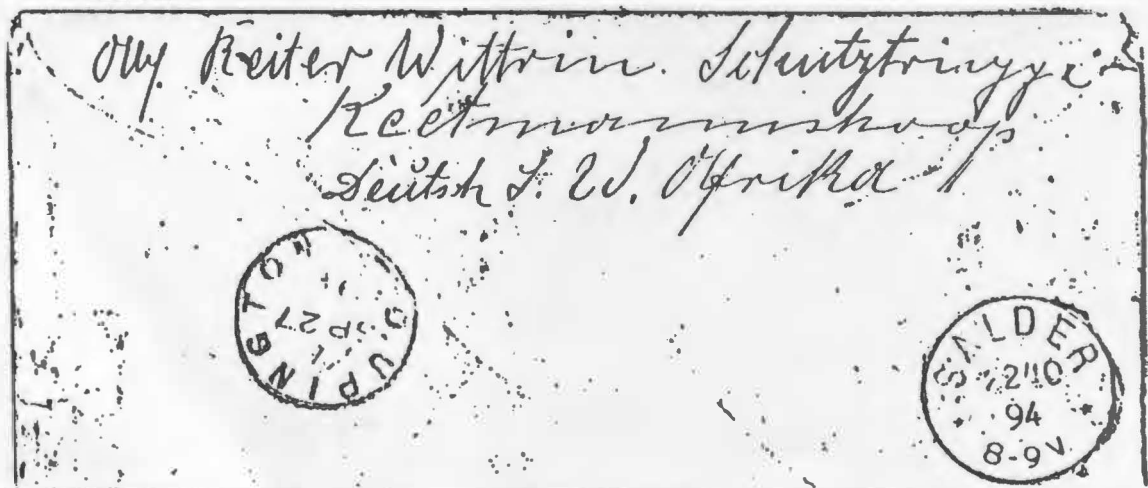 Reiter Wittrin. Schutztruppe
Keetmannshoop
Deutsch S. W. Afrika
UPINGTON
SP 27
SALDER
94
8-9V